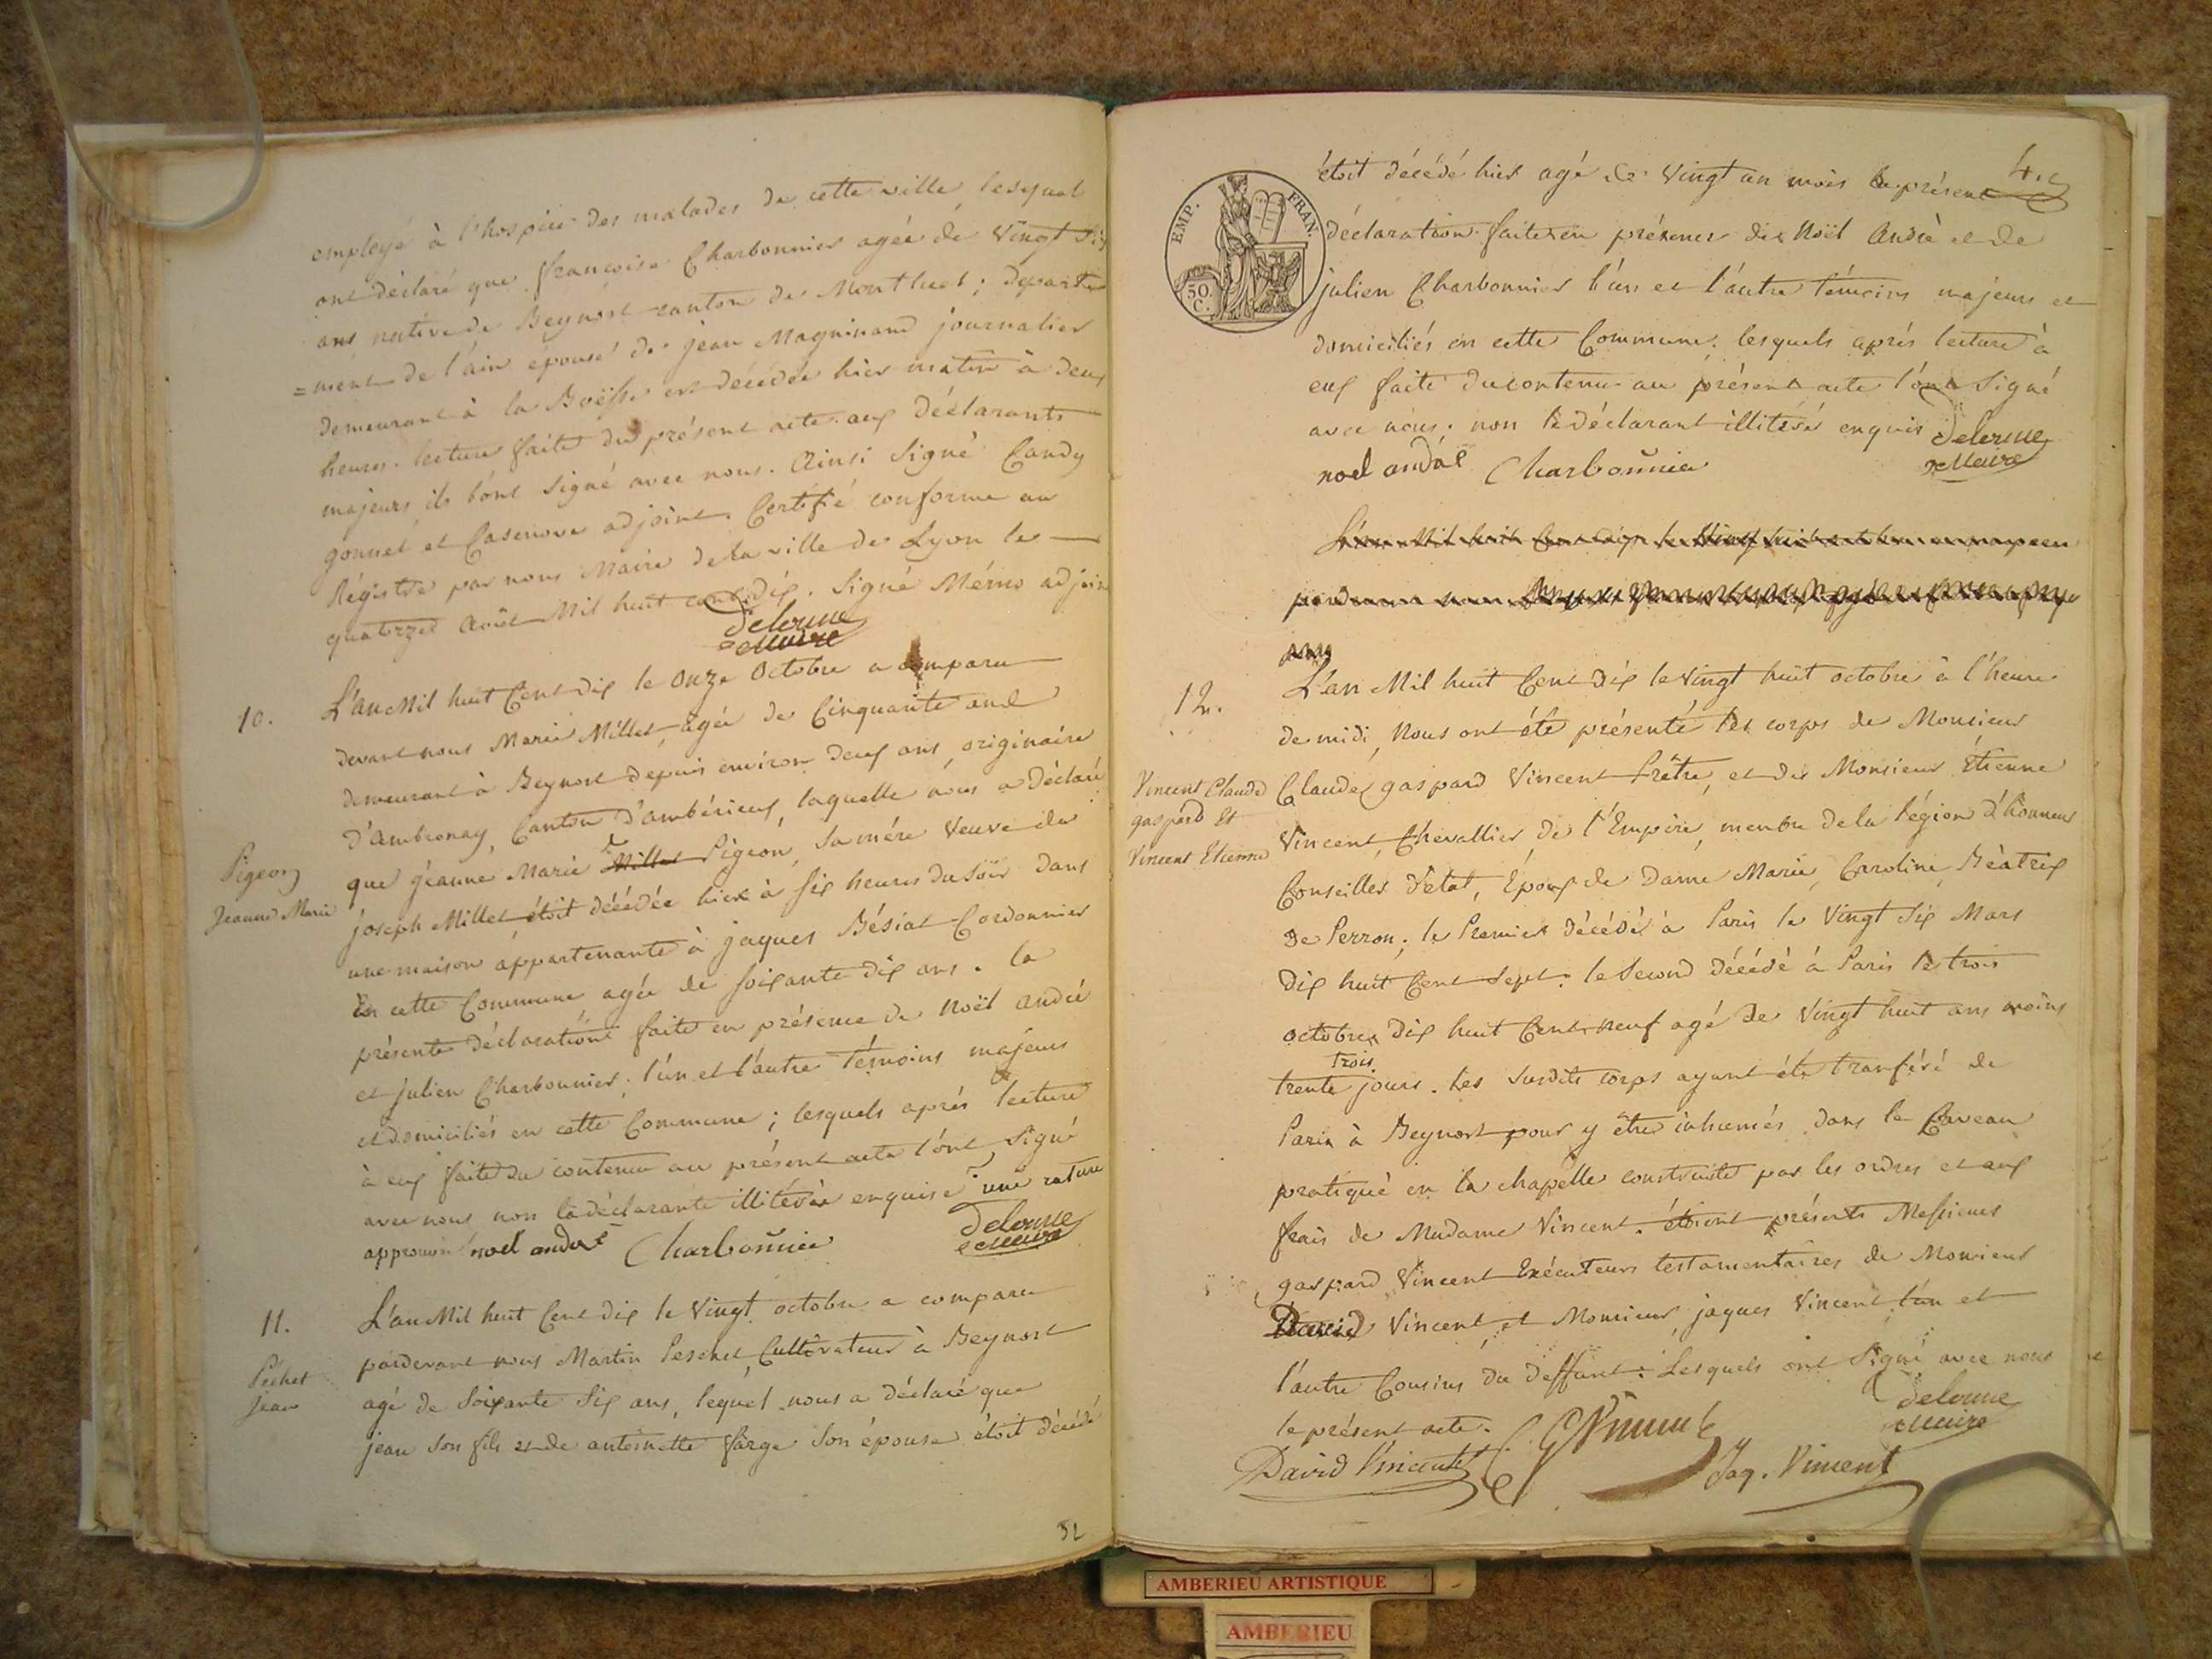 employé à l'hospice des malades de cette ville, lesquel
ont déclaré que françoise Charbonnier agée de Vingt Six
ans native de Beynost canton de Montluel; départe
=ment de l'ain epouse de jean Magninand journalier
demeurant à la Boësse est décédée hier matin à deux
heures. lecture faite du présent acte aux déclarants
majeurs ils l'ont signé avec nous. Ainsi Signé Candy
gonnet et Casenove adjoint. Certifié conforme au
Régistre par nous Maire de la ville de Lyon le
quatorze Août Mil huit cent dix. Signé adjoin
Delorme
Maire
10.
L'an Mil huit Cent dix le Onze Octobre a comparu
devant nous Marie Millet, agée de Cinquante ans
demeurant à Beynost depuis environ deux ans, originaire
d'Ambronay, Canton d'ambérieux, laquelle nous a déclaré
Pigeon
Jeanne Marie
que jéanne Marie Millet Pigeon, sa mére Veuve de
joseph Millet, étoit décédée hier à six heures du soir dans
une maison appartenante à jaques Bésiat Cordonnier
En cette Commune agée de soixante dix ans. la
présente déclaration faite en présence de Noël andré
et Julien Charbonnier, l'un et l'autre témoins majeurs
et domiciliés en cette Commune; lesquels aprés lecture
à eux faite du contenu au présent acte l'ont signé
avec nous non la déclarante illitérée enquise une rature
approuvé noel andré Charbonnier
Delorme
Maire
11.
L'an Mil huit Cent dix le Vingt octobre a comparu
pardevant nous Martin Peschet Cultivateur à Beynost
Péchet
Jean
agé de Soixante Six ans, lequel nous a déclaré que
jean son fils et de antoinette farge son épouse étoit décédé
32
4.
étoit décédé hier agé de Vingt un mois la présent
déclaration faite en présence de Noël André et de
julien Charbonnier l'un et l'autre témoins majeurs et
domiciliés en cette Commune. lesquels aprés lecture à
eux faite du contenu au présent acte l'ont Signé
avec nous; non le déclarant illitéré enquis Delorme
noel andré Charbonnier Maire
EMP. FRAN.
50.
C.
L'an Mil huit Cent dix le Vingt huit
12.
L'an Mil huit Cent Dix le Vingt huit octobre à l'heure
de midi, Nous ont été présenté les corps de Monsieur
Vincent Claude
gaspard Et
Vincent Etienne
Claude, gaspard Vincent Prêtre, et de Monsieur Étienne
Vincent, Chevallier de l'Empire, menbre de la légion d'honneur
Conseiller d'etat, Époux de Dame Marie, Caroline, Béatrix
De Perron; le Premier décédé à Paris le Vingt Six Mars
Dix huit Cent Sept. le Second décédé à Paris le trois
octobre Dix huit Cent neuf agé de Vingt huit ans moins
trois
trente jours. les susdits corps ayant été tranféré de
Paris à Beynost pour y être inhumés dans le Caveau
pratiqué en la chapelle construite par les ordres et aux
frais de Madame Vincent. étoient présents Messieurs
gaspard Vincent Exécuteurs testamentaires de Monsieur
David Vincent, et Monsieur jaques Vincent l'un et
l'autre Cousins du deffunt. Lesquels ont Signé avec nous
le présent acte.
Delorme
Maire
David Vincent G Vincent Jaq. Vincent
AMBERIEU ARTISTIQUE
AMBERIEU